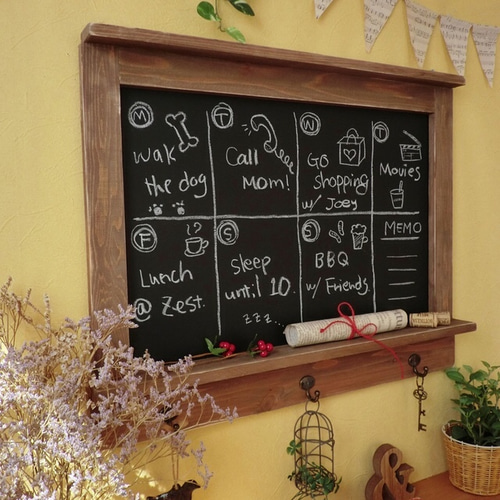 M
wak
the dog
T
Call
Mom!
W
GO
shopping
w/ Joey
T
Movies
F
Lunch
@ Zest.
S
Sleep
until 10.
zzz...
S
BBQ
w/ Friends.
MEMO
&